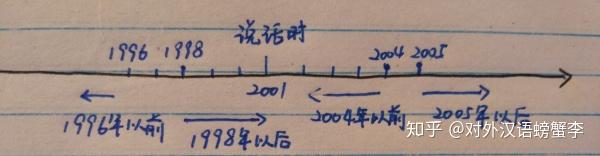 说话时
1996 1998 2004 2005
2001
1996年以前 1998年以后 2004年以前 2005年以后
知乎 @对外汉语螃蟹李